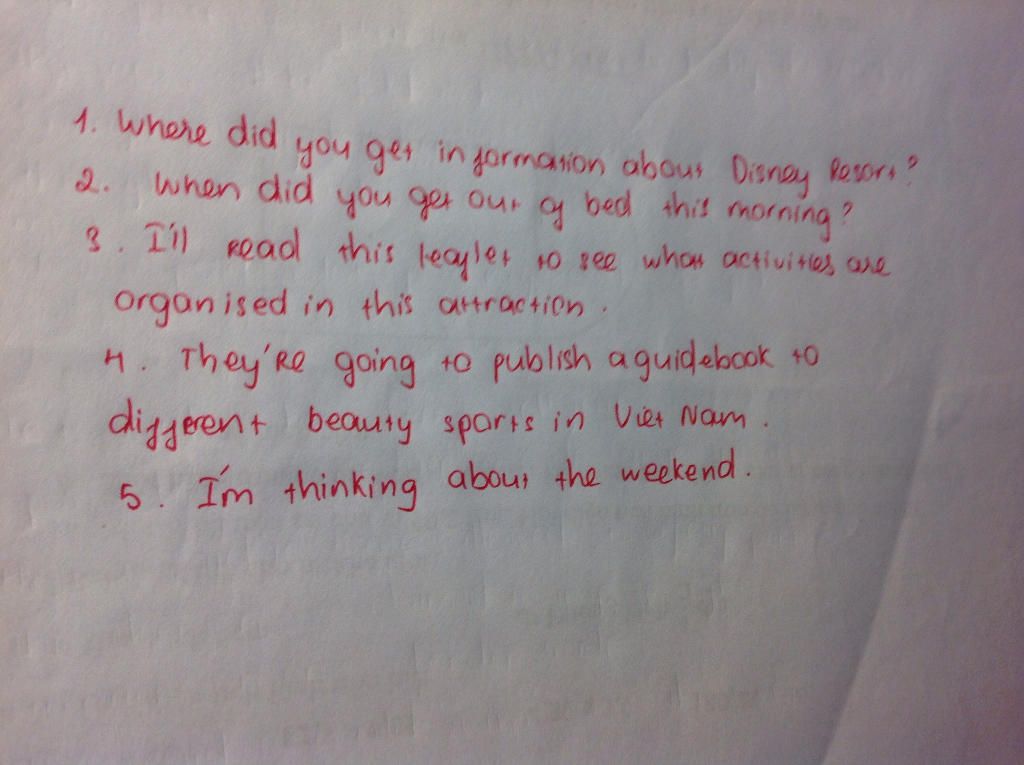 1. Where did you get information about Disney Resort?
2. When did you get out of bed this morning?
3. I'll read this leaflet to see what activities are
organised in this attraction.
4. They're going to publish a guidebook to
different beauty sports in Viet Nam.
5. I'm thinking about the weekend.